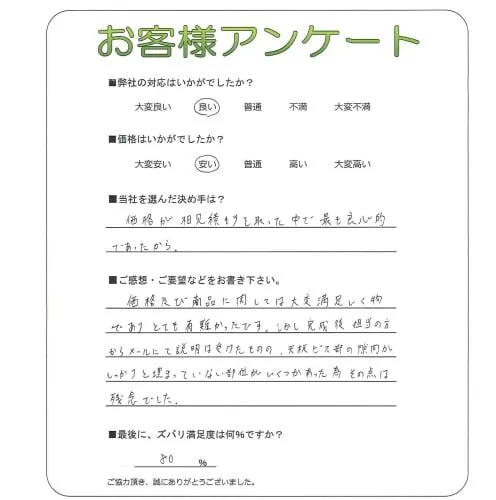 お客様アンケート
■弊社の対応はいかがでしたか？
大変良い 良い 普通 不満 大変不満
■価格はいかがでしたか？
大変安い 安い 普通 高い 大変高い
■当社を選んだ決め手は？
価格が相見積もりを取った中で最も良心的
であったから。
■ご感想・ご要望などをお書き下さい。
価格及び商品に関しては大変満足いく物
でありとても有難かったです。しかし完成後担当の方
からメールにて説明は受けたものの、天板ビス部の隙間が
しっかりと埋まっていない部位がいくつかあった為その点は
残念でした。
■最後に、ズバリ満足度は何%ですか？
80 %
ご協力頂き、誠にありがとうございました。